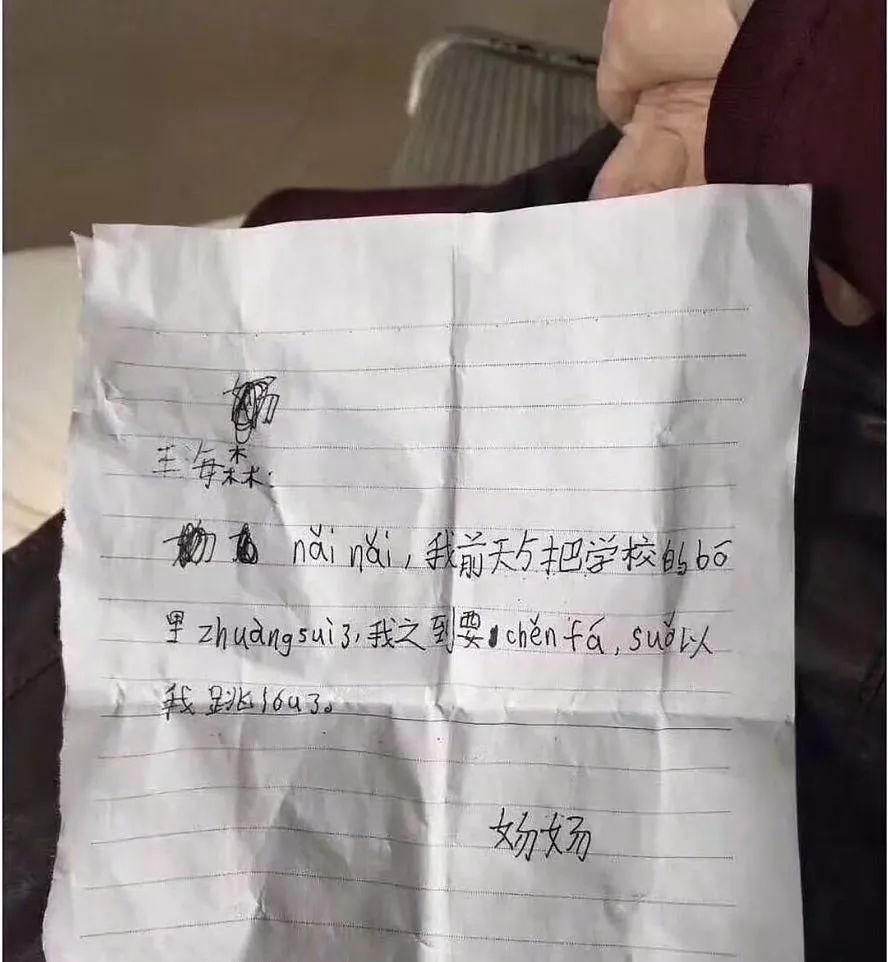 王海森森：
nǎi nǎi，我前天与把学校的bō
里zhuàng suì了，我之到要chěn fá，suǒ以
我跳lóu了。
妫妫